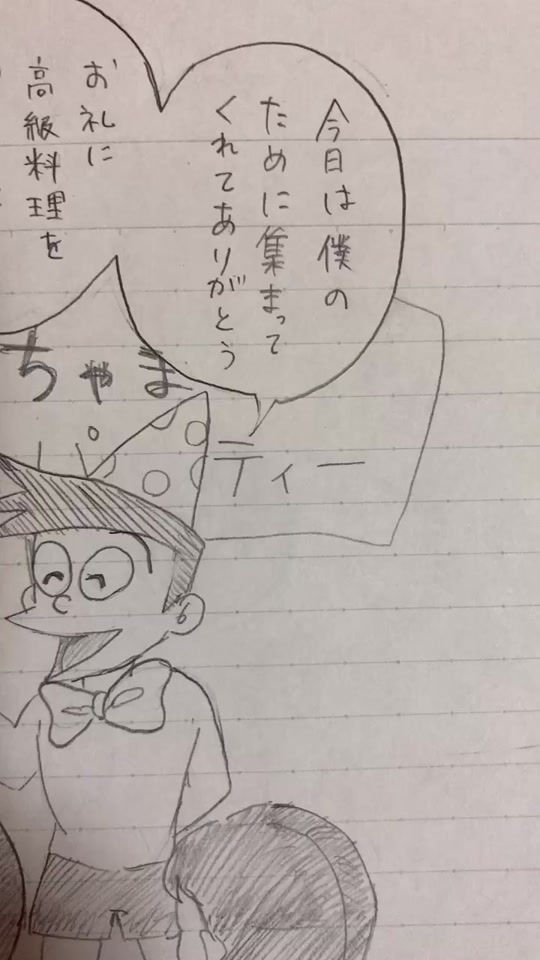 今日は僕の
ために集まって
くれてありがとう
お礼に
高級料理を
ちゃま
パ
ティー